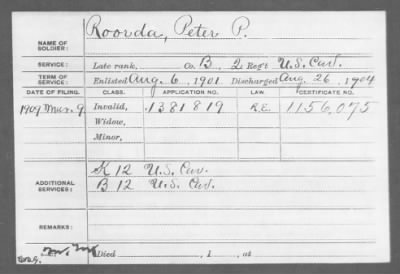 NAME OF SOLDIER: Roorda, Peter P.
SERVICE: Late rank, Co. B, 2 Reg't U.S. Cav.
TERM OF SERVICE: Enlisted Aug. 6, 1901. Discharged Aug. 26, 1904
DATE OF FILING. CLASS. APPLICATION NO. LAW. CERTIFICATE NO.
1909 Mar. 9 Invalid, 1381819 R.E. 1156,075
Widow,
Minor,
ADDITIONAL SERVICES: K 12 U.S. Cav.
B 12 U.S. Cav.
REMARKS:
Died , 1 , at